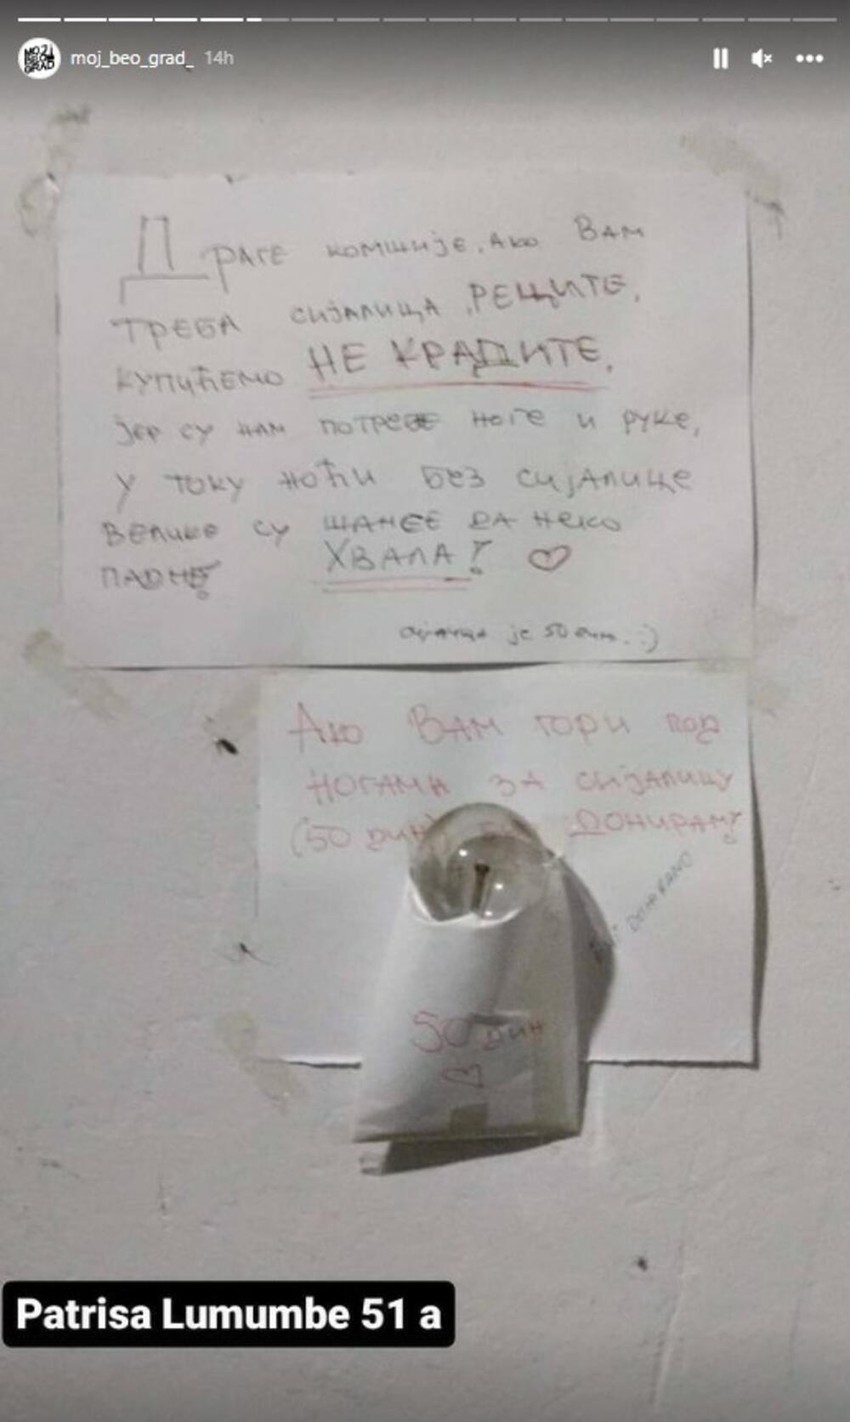 moj_beo_grad_ 14h
Драге комшије, Ако Вам
треба сијалица, РЕЦИТЕ,
купићемо НЕ КРАДИТЕ,
јер су нам потребе ноге и руке,
у току ноћи без сијалице
велике су шансе да неко
падне ХВАЛА! ♡
сијалица је 50 дин. :)
Ако Вам гори под
ногама за сијалицу
(50 дин) ДОНИРАМ
50 дин
♡
Patrisa Lumumbe 51 a